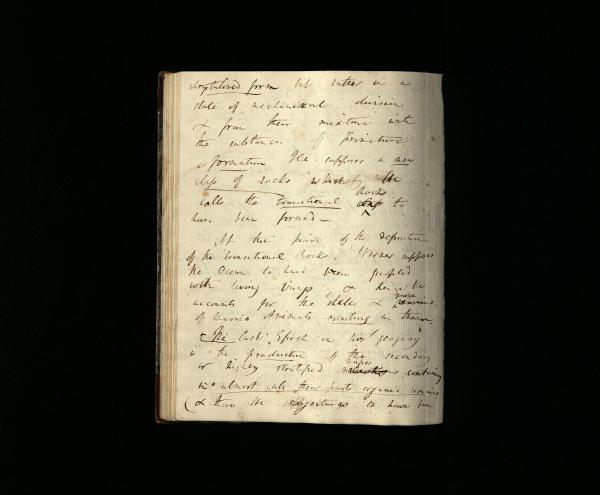 crystallized form but rather in a
state of mechanical division
& from their mixture with
the substances of primitive
formation He supposes a new
class of rocks which he
calls the transitional Rocks to
have been formed –
At the period of the deposition
of the transitional Rocks, Werner supposes
the Ocean to have been peopled
with living beings & hence he
accounts for the shells & remains
of marine Animals existing in them.
The last Epoch in his geogony
is the production of the secondary
or highly stratified containing
in almost all their parts organic remains
& these he conjectures to have been